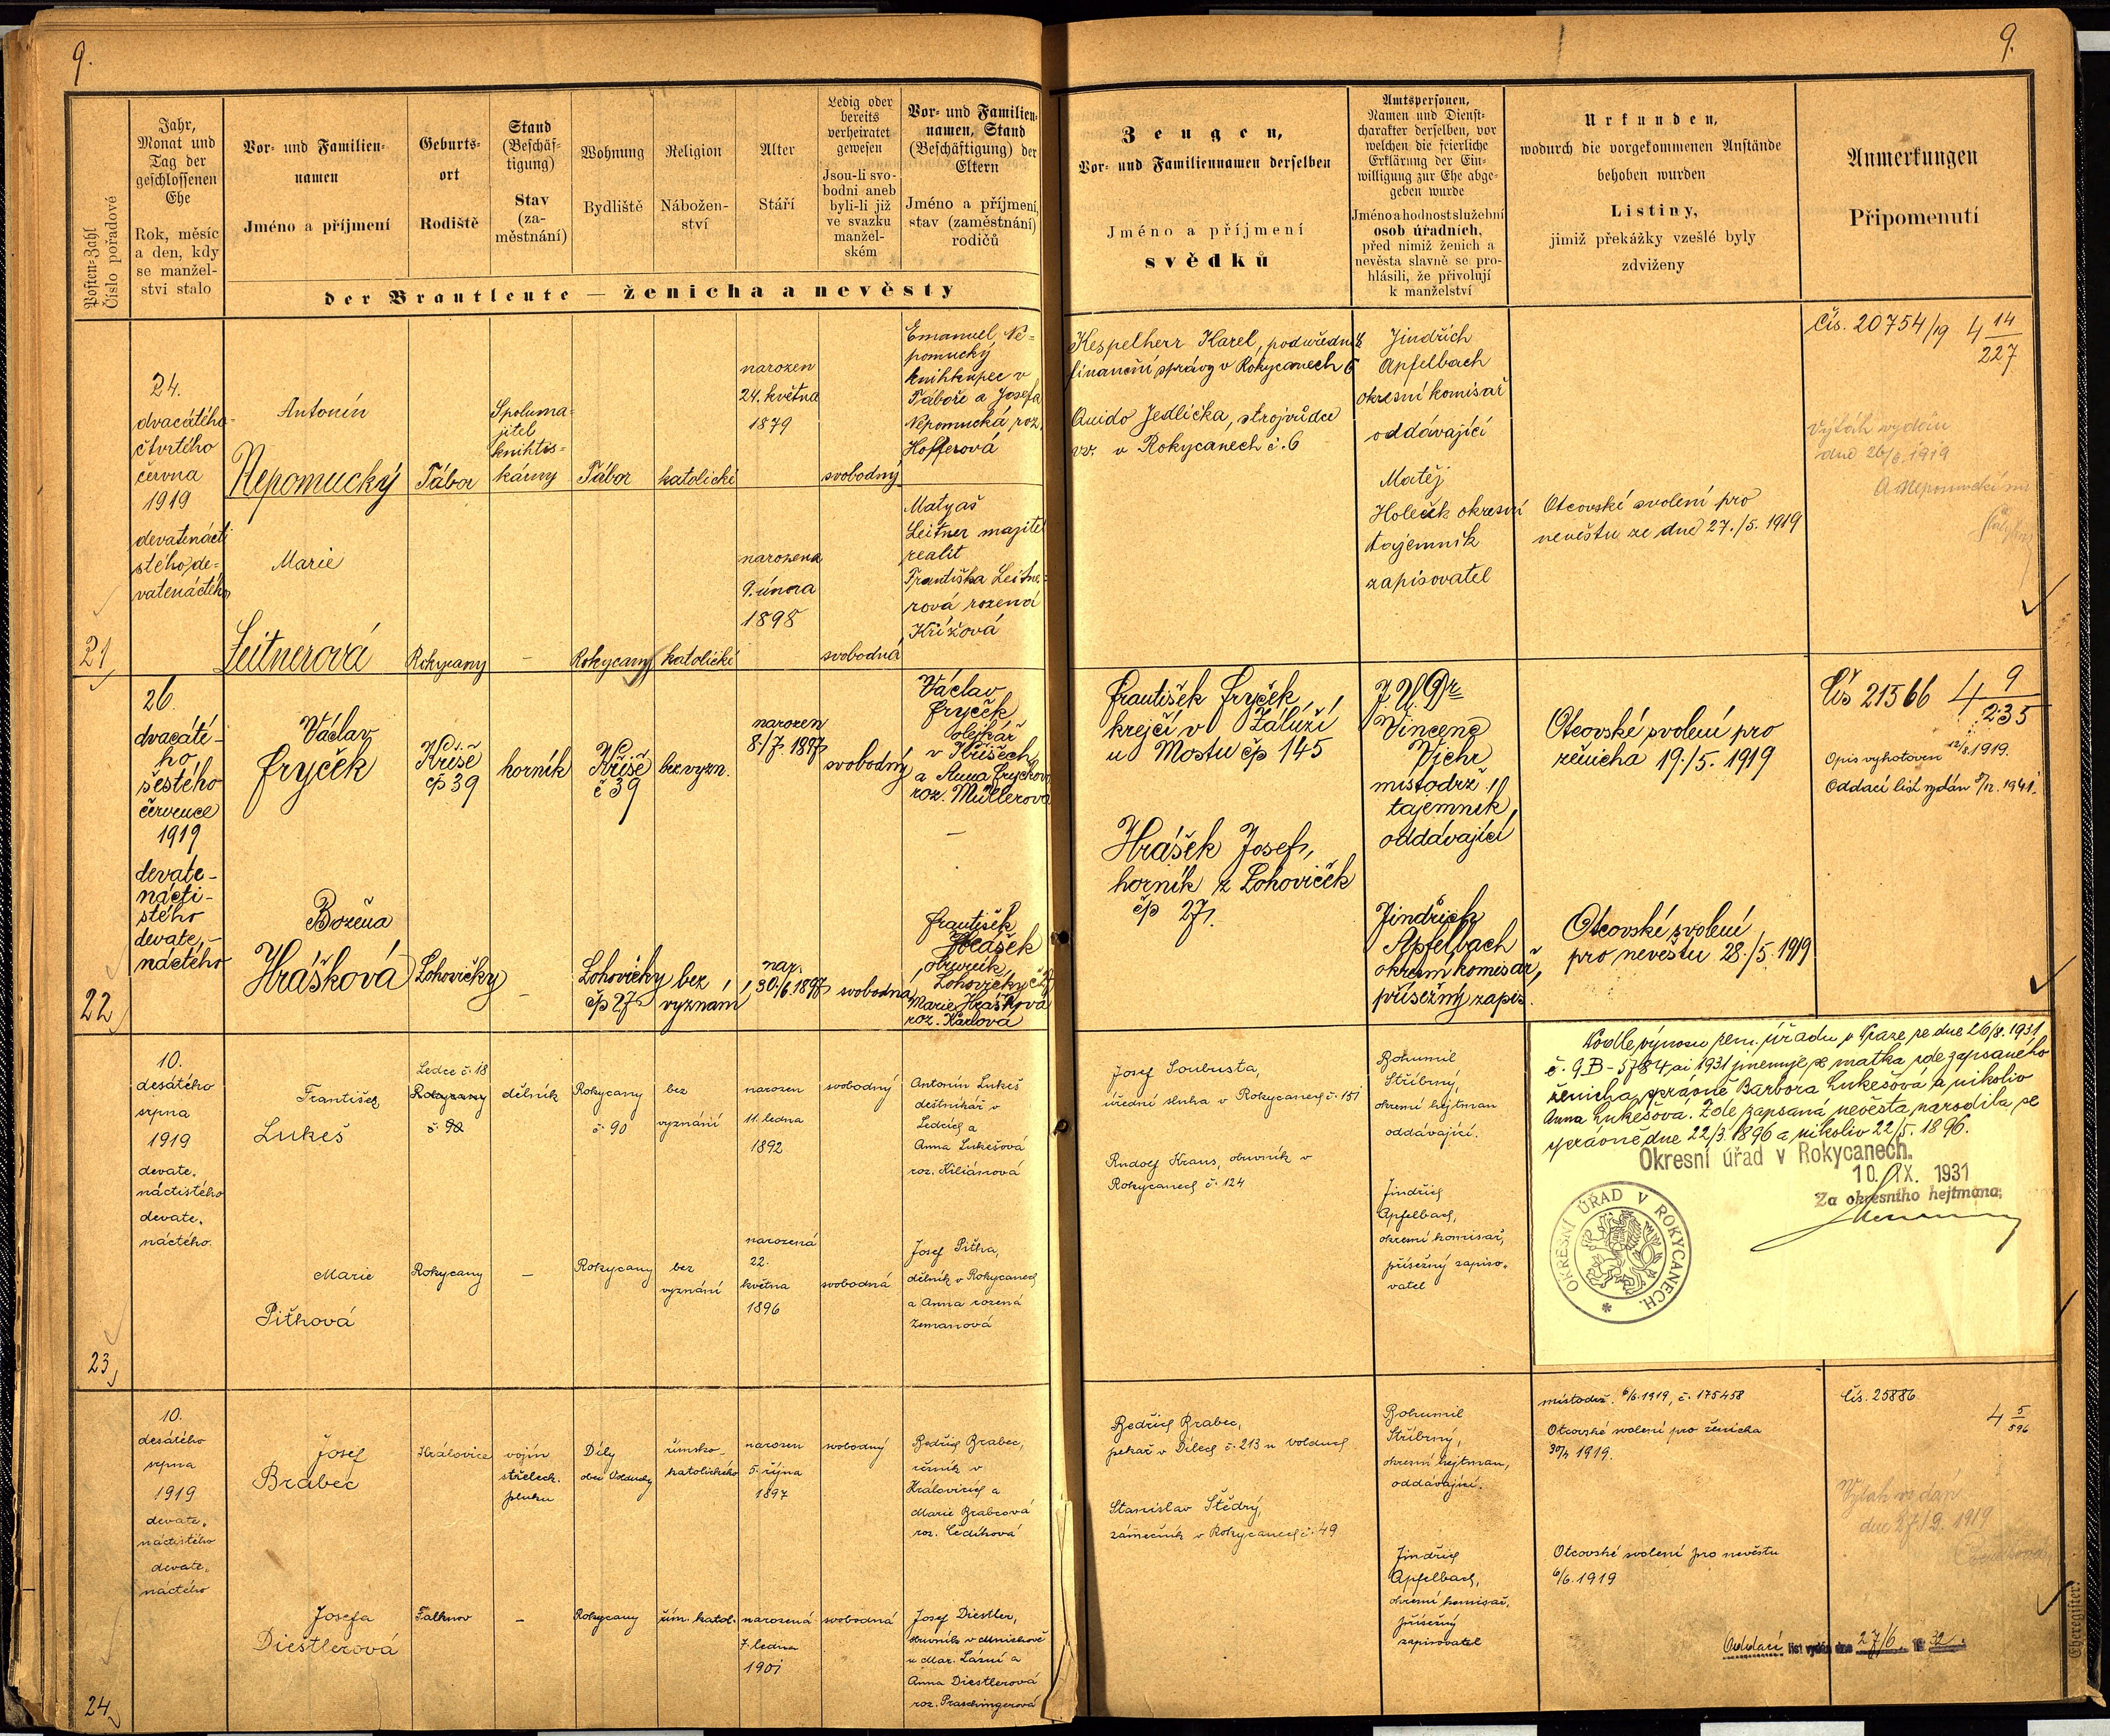 9.
9.
Posten-Zahl
Číslo pořadové
Jahr,
Monat und
Tag der
geschlossenen
Ehe
Rok, měsíc
a den, kdy
se manžel-
ství stalo
Vor- und Familien-
namen
Jméno a příjmení
Geburts-
ort
Rodiště
Stand
(Beschäf-
tigung)
Stav
(za-
městnání)
Wohnung
Bydliště
Religion
Nábožen-
ství
Alter
Stáří
Ledig oder
bereits
verheiratet
gewesen
Jsou-li svo-
bodni aneb
byli-li již
ve svazku
manžel-
ském
Vor- und Familien-
namen, Stand
(Beschäftigung) der
Eltern
Jméno a příjmení,
stav (zaměstnání)
rodičů
der Brautleute — ženicha a nevěsty
Zeugen,
Vor- und Familiennamen derselben
Jméno a příjmení
svědků
Amtspersonen,
Namen und Dienst-
charakter derselben, vor
welchen die feierliche
Erklärung der Ein-
willigung zur Ehe abge-
geben wurde
Jméno a hodnost služební
osob úředních,
před nimiž ženich a
nevěsta slavně se pro-
hlásili, že přivolují
k manželství
Urkunden,
wodurch die vorgekommenen Anstände
behoben wurden
Listiny,
jimiž překážky vzešlé byly
zdviženy
Anmerkungen
Připomenutí
21
24.
dvacátého
čtvrtého
června
1919
devatenácti
stého de=
vatenáctého
Antonín
Nepomucký
Tábor
Spoluma=
jitel
knihtis=
kárny
Tábor
katolické
narozen
24. května
1879
svobodný
Emanuel Ne=
pomucký
knihkupec v
Táboře a Josefa
Nepomucká roz.
Hofferová
Marie
Leitnerová
Rokycany
–
Rokycany
katolické
narozena
9. února
1898
svobodná
Matyáš
Leitner majitel
realit
Františka Leitne=
rová rozená
Křížová
Kespelherr Karel, podúředník
finanční správy v Rokycanech 6
Quido Jedlička, strojvůdce
vv. v Rokycanech č. 6
Jindřich
Apfelbach
okresní komisař
oddávající
Matěj
Holeček okresní
tajemník
zapisovatel
Otcovské svolení pro
nevěstu ze dne 27./5. 1919
Čís. 20754/19 4 14/227
Výtah vydán
dne 26/6. 1919
22
26.
dvacáté-
ho
šestého
července
1919
devate-
nácti-
stého
devate-
náctého
Václav
Fryček
Kříše
čp 39
horník
Kříše
č 39
bez vyzn.
narozen
8./7. 1897
svobodný
Václav
Fryček
olejkář
v Kříšech
a Anna Fryčková
roz. Müllerová
–
Božena
Hrášková
Lohovičky
–
Lohovičky
čp 27
bez
vyznání
nar.
30./6. 1897
svobodna
František
Hrášek
obuvník,
Lohovičky č 27
Marie Hrášková
roz. Karlová
František Fryček,
krejčí v Záluží
u Mostu čp 145
Hrášek Josef,
horník z Lohoviček
čp 27.
J. U. Dr
Vincenc
Vichr
místodrž.
tajemník,
oddávající
Jindřich
Apfelbach
okresní komisař,
přísežný zapis.
Otcovské svolení pro
ženicha 19./5. 1919
Otcovské svolení
pro nevěstu 28./5. 1919
Čís 21566 4 9/235
Opis vyhotoven 12/8. 1919.
Oddací list vydán 5/12. 1941.
23
10.
desátého
srpna
1919
devate.
náctistého
devate.
náctého.
František
Lukeš
Ledce č. 18
Rokycany
č. 90
dělník
Rokycany
č. 90
bez
vyznání
narozen
11. ledna
1892
svobodný
Antonín Lukeš
deštníkář v
Ledcích a
Anna Lukešová
roz. Kiliánová
Marie
Pithová
Rokycany
–
Rokycany
bez
vyznání
narozená
22.
května
1896
svobodná
Josef Pitha,
dělník v Rokycanech
a Anna rozená
Zemanová
Josef Soubusta,
úřední sluha v Rokycanech č. 151
Rudolf Kraus, obuvník v
Rokycanech č. 124
Bohumil
Stříbrný,
okresní hejtman
oddávající.
Jindřich
Apfelbach,
okresní komisař,
přísežný zapiso.
vatel
Podle výnosu zem. úřadu v Praze ze dne 26/8. 1931
č. 9 B - 5784 ai 1931 jmenuje se matka zde zapsaného
ženicha správně Barbora Lukešová a nikoliv
Anna Lukešová. Zde zapsaná nevěsta narodila se
správně dne 22/3. 1896 a nikoliv 22/5. 1896.
Okresní úřad v Rokycanech.
10. IX. 1931
Za okresního hejtmana:
OKRESNÍ ÚŘAD V ROKYCANECH.
24
10.
desátého
srpna
1919
devate.
náctistého
devate.
náctého
Josef
Brabec
Kralovice
vojín
střeleck.
pluku
Díly
obec Volduchy
římsko-
katolického
narozen
5. října
1897
svobodný
Bedřich Brabec,
řezník v
Kralovicích a
Marie Brabcová
roz. Čedíková
Josefa
Diestlerová
Falknov
–
Rokycany
řím. katol.
narozená
7. ledna
1901
svobodná
Josef Diestler,
obuvník v Mnichově
u Mar. Lázní a
Anna Diestlerová
roz. Praschingerová
Bedřich Brabec,
pekař v Dílech č. 213 u Volduch
Stanislav Štědrý,
zámečník v Rokycanech č. 49
Bohumil
Stříbrný,
okresní hejtman,
oddávající.
Jindřich
Apfelbach,
okresní komisař,
přísežný
zapisovatel
místodrž. 6/6. 1919, č. 175458
Otcovské svolení pro ženicha
30/7. 1919.
Otcovské svolení pro nevěstu
6/6. 1919
Čís. 25886
4 5/596
Výtah vydán
dne 27./9. 1919
Oddací list vydán dne 27/6. 1932.
Eheregister.